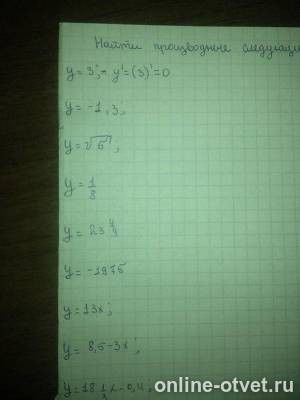 Найти производные следующи
y = 3; - y' = (3)' = 0
y = -1,3;
y = √5;
y = 1/3
y = 23 4/9
y = -1975
y = 13x;
y = 8,5-3x;
y = 18 x - 0,4
online-otvet.ru